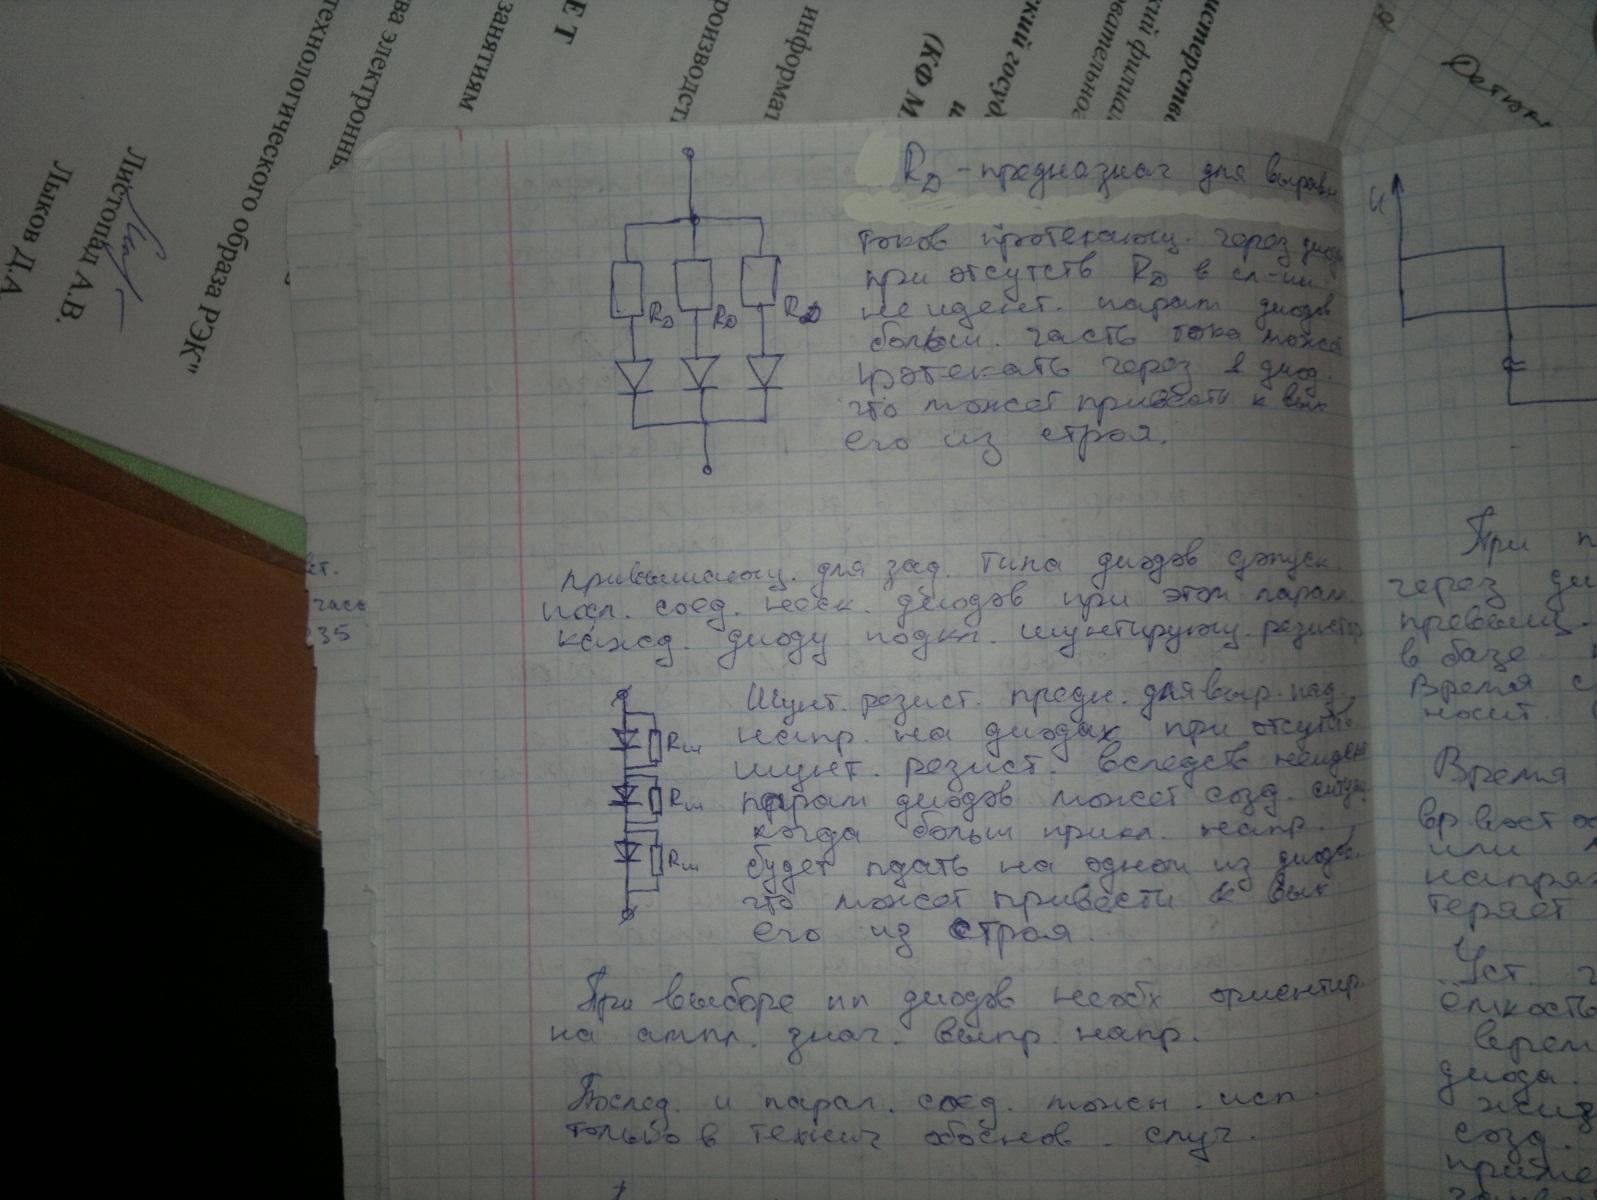 технологического образа РЭК"
Листопад А.В.
Лыков Д.А
занятиям
ЕТ
информат
(КФ М
и
кий госуд
кий филиа
истерств
Rд - предназнач для выравн
токов протекающ. через диод
при отсутств Rд в сл-ии
не идент. парам диодов
больш. часть тока может
протекать через 1 диод.
что может привести к вых
его из строя.
Rд Rд Rд
привышающ. для зад. типа диодов допуск
посл. соед. неск. диодов при этом парал
кажд. диоду подкл. шунтирующ. резистор
Шунт. резист. предн. для выр. пад.
напр. на диодах при отсутств.
шунт. резист. вследств неидент
парам диодов может созд. ситуац
когда больш прикл. напр.
будет пдать на одном из диодов.
что может привести к вых
его из строя.
Rш
Rш
Rш
При выборе пп диодов необх ориентир.
на ампл. знач. выпр. напр.
Послед. и парал. соед. можн. исп.
только в технич обоснов. случ.
кт.
часс
,35
U
При п
через ди
превыш.
в базе
Время с
носит.
Время
вр вост
или
напряж
теряет
Уст.
ёмкость
диода.
созд.